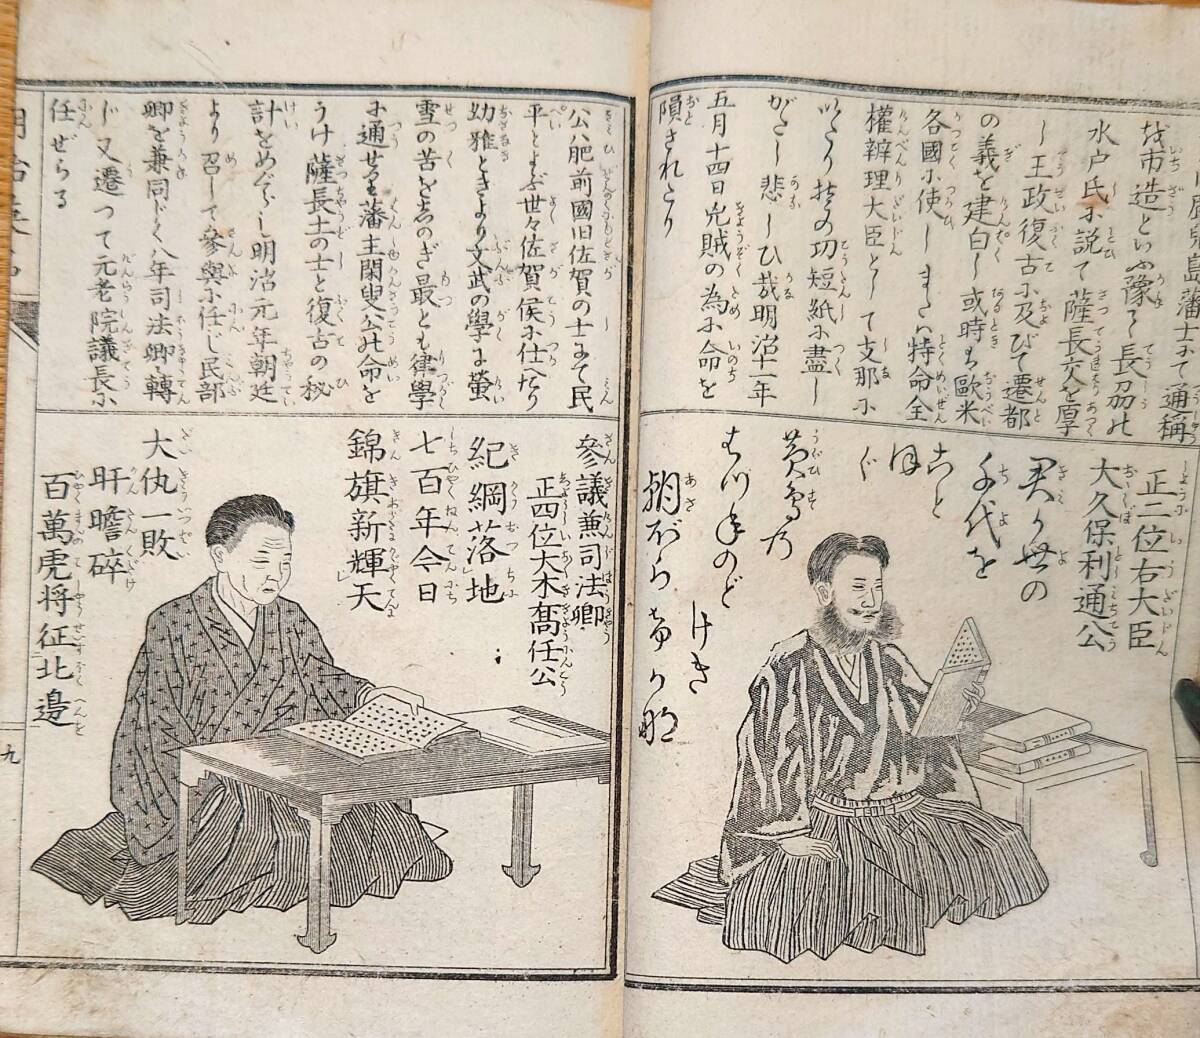 鹿児島藩士にて通称
を市造といふ豫て長州の
水戸氏に説て薩長交を厚
し王政復古に及びて遷都
の義を建白し或時は歐米
各國に使しまた特命全
權辨理大臣として支那に
いたり其の功短紙に盡し
がたし悲しひ哉明治十一年
五月十四日兇賊の為に命を
隕されたり
正二位右大臣
大久保利通公
君が世の
千代を
こと
ほ
ぐ
黄鳥乃
はつ音のど
けき
朝ぼらけかな
公ハ肥前國旧佐賀の士にて民
平とよぶ世々佐賀侯に仕へたり
幼雅ときより文武の學に螢
雪の苦をしのぎ最とも律學
に通せり藩主閑叟公の命を
うけ薩長土の士と復古の秘
計をめぐらし明治元年朝廷
より召して參與に任じ民部
卿を兼同じく八年司法卿に轉
じ又遷つて元老院議長に
任ぜらる
參議兼司法卿
正四位大木喬任公
紀綱落地
七百年今日
錦旗新輝天
大仇一敗
肝瞻碎
百萬虎將征北邉
九